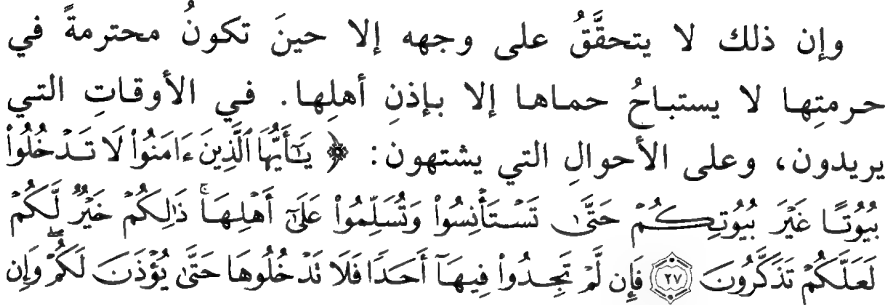 وإن ذلك لا يتحقَّقُ على وجهه إلا حينَ تكونُ محترمةً في
حرمتِها لا يستباحُ حماها إلا بإذنِ أهلِها. في الأوقاتِ التي
يريدون، وعلى الأحوالِ التي يشتهون: ﴿ يَٰٓأَيُّهَا ٱلَّذِينَ ءَامَنُوا۟ لَا تَدْخُلُوا۟
بُيُوتًا غَيْرَ بُيُوتِكُمْ حَتَّىٰ تَسْتَأْنِسُوا۟ وَتُسَلِّمُوا۟ عَلَىٰٓ أَهْلِهَا ۚ ذَٰلِكُمْ خَيْرٌ لَّكُمْ
لَعَلَّكُمْ تَذَكَّرُونَ ۝٢٧ فَإِن لَّمْ تَجِدُوا۟ فِيهَآ أَحَدًا فَلَا تَدْخُلُوهَا حَتَّىٰ يُؤْذَنَ لَكُمْ ۖ وَإِن